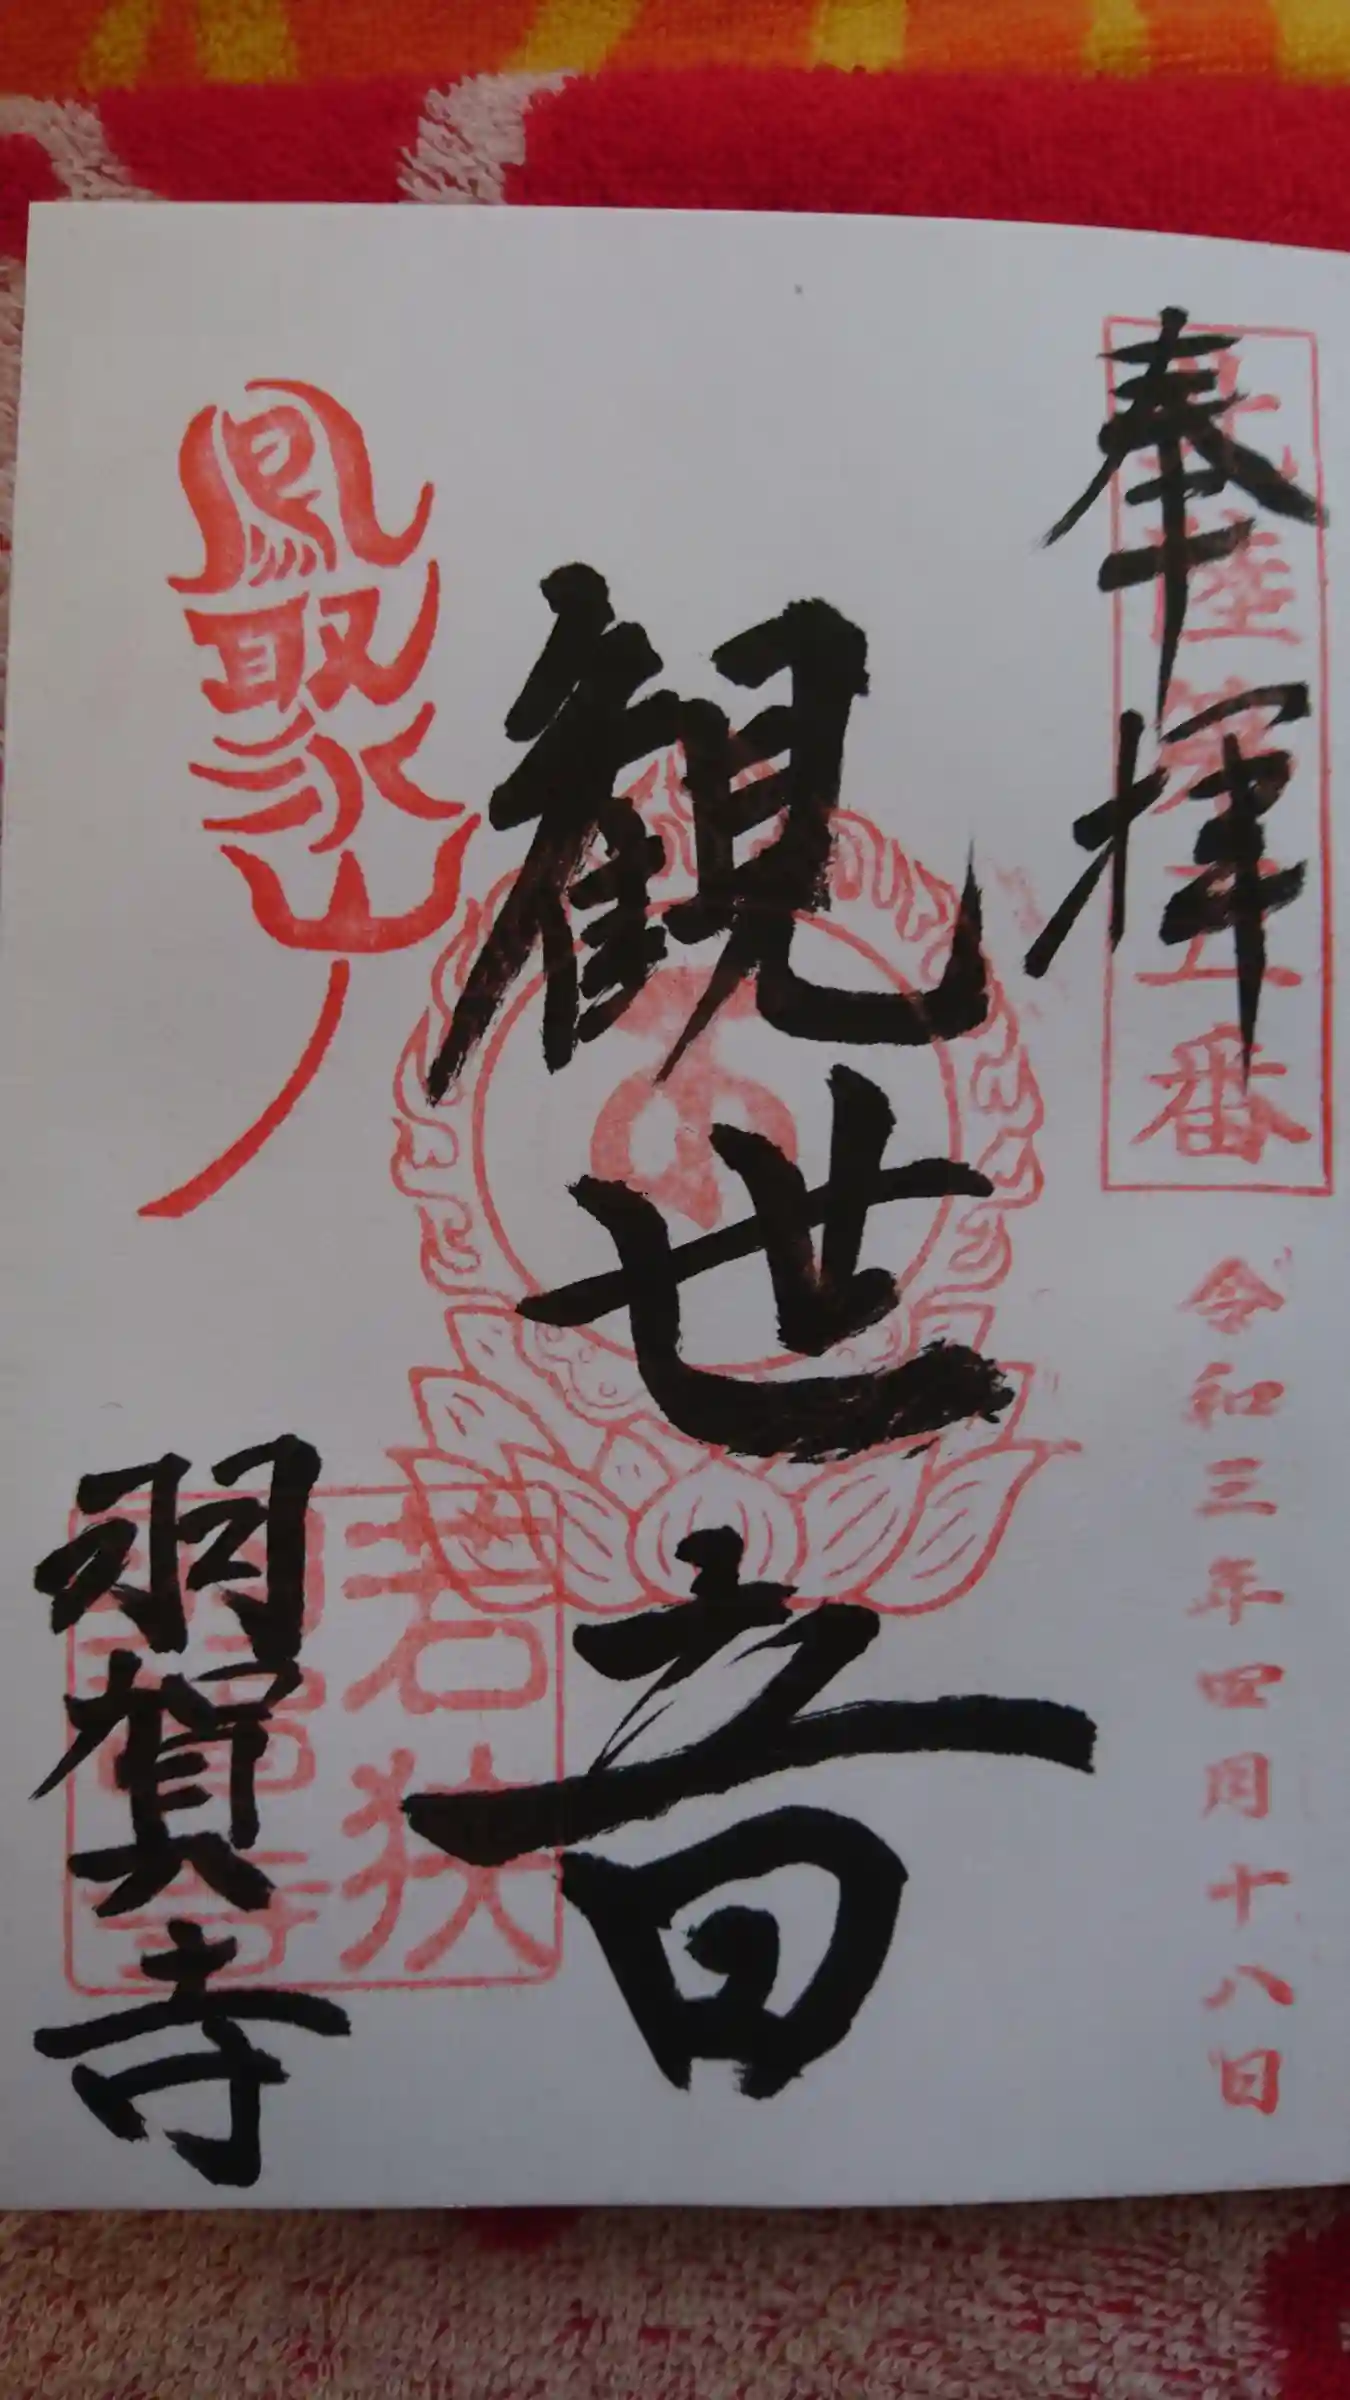 奉拝
北陸第五番
令和三年四月十八日
観世音
鳳聚山
若狭
羽賀寺
羽賀寺